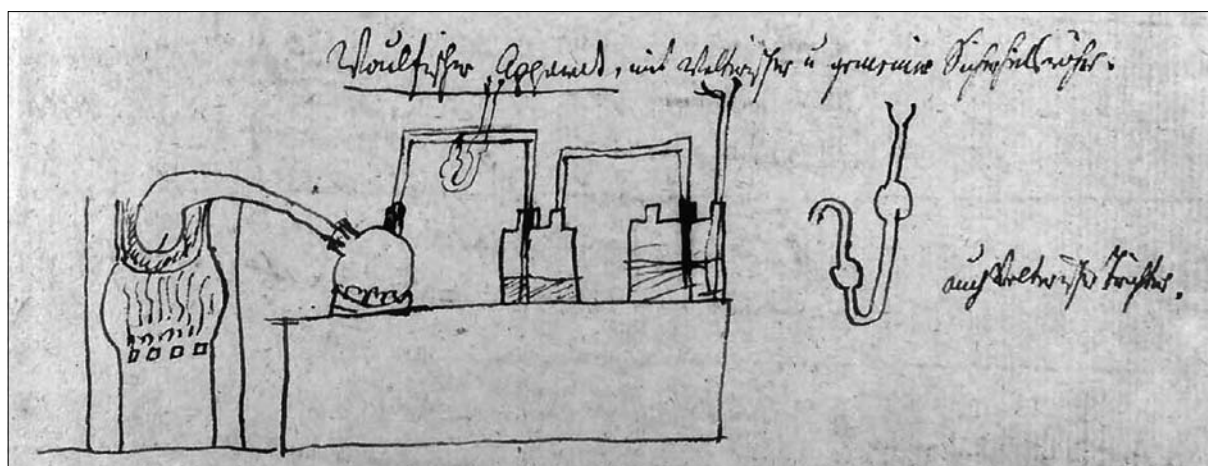 Woulfischer Apparat, mit Welterscher u gemeiner Sicherheitsröhre.
auch Welterische Trichter.